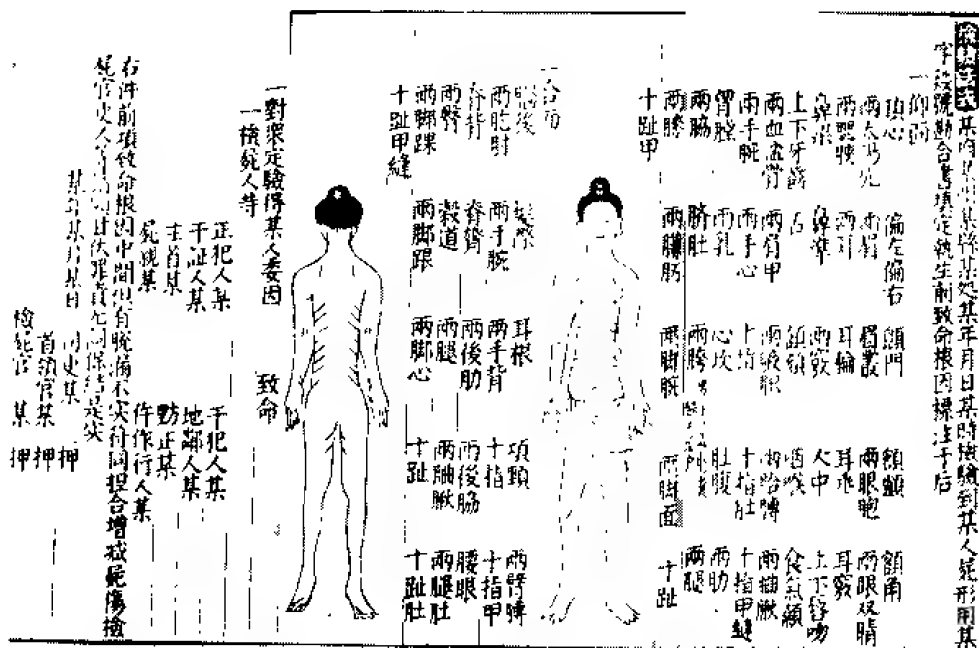 某府某州某縣某處某年月日某時檢驗到某人屍形用某
字幾號勘合書填定執生前致命根因標注于后
一仰面
頂心 偏左偏右 顖門 額顱 額角
兩太陽穴 兩眉 眉叢 兩眼胞 兩眼双睛
兩腮頰 兩耳 耳輪 耳垂 耳竅
鼻梁 鼻準 兩竅 人中 上下唇吻
上下牙齒 舌 頷頦 咽喉 食氣顙
兩血盆骨 兩肩甲 兩腋肢 兩胳膊
兩手腕 兩手心 十指 十指肚 十指甲縫
胷膛 兩乳 心坎 肚腹 兩肋
兩脇 臍肚 兩胯 兩腿
兩膝 兩臁肕 兩脚腕 兩脚面 十趾
十趾甲
一合面
腦後 髮際 耳根 項頸 兩臂膊
兩胳肘 兩手腕 兩手背 十指 十指甲
脊背 脊膂 兩後肋 兩後脇 腰眼
兩臀 穀道 兩腿 兩腿肚
兩脚踝 兩脚跟 兩脚心 十趾 十趾肚
十趾甲縫
一對衆定驗得某人委因 致命
一檢屍人等
正犯人某 干犯人某
干証人某 地鄰人某
主首某
屍親某 仵作行人某
右件前項致命根因中間但有脫漏不實符同捏合增減屍傷檢
屍官吏人等情願甘伏罪責無詞保結是實
某年某月某日 司吏某 押
首領官某 押
檢屍官 某 押